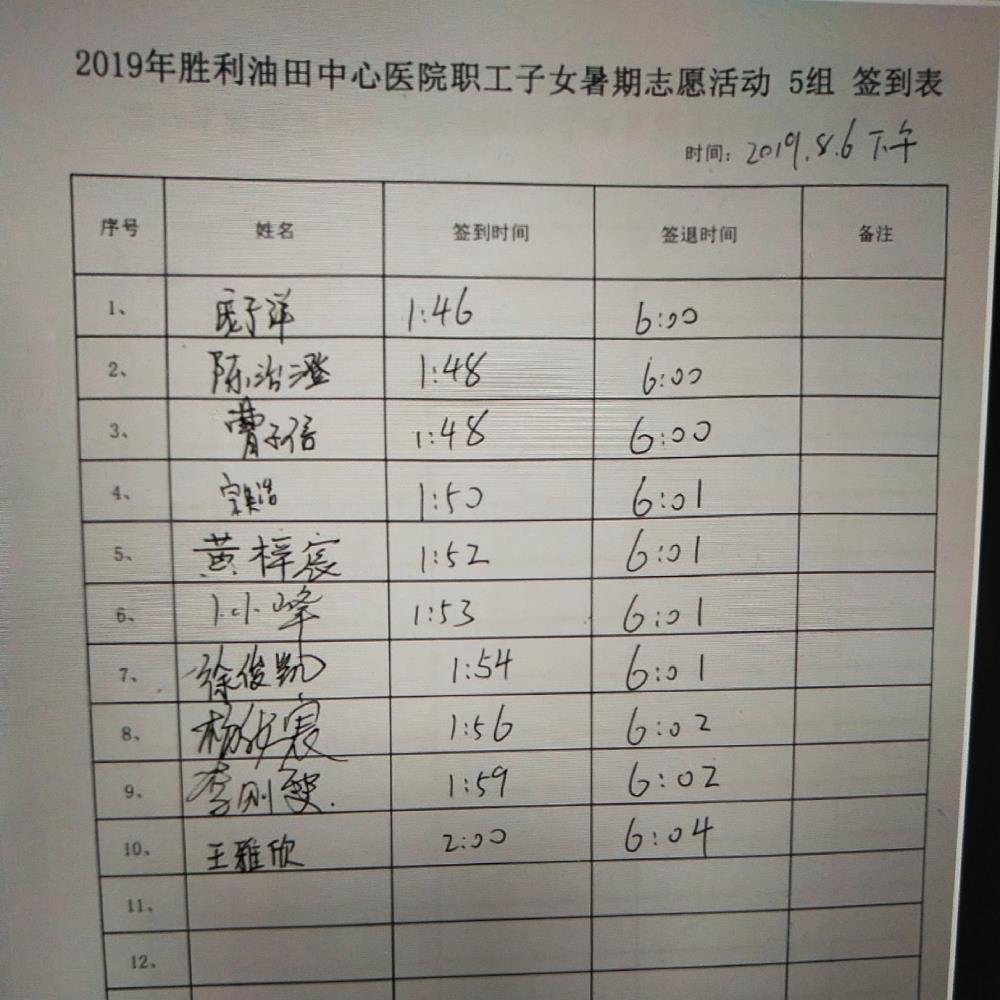 2019年胜利油田中心医院职工子女暑期志愿活动 5组 签到表
时间: 2019.8.6 下午
序号 姓名 签到时间 签退时间 备注
1、 子洋 1:46 6:00
2、 陈治澄 1:48 6:00
3、 曹子信 1:48 6:00
4、 1:50 6:01
5、 黄梓宸 1:52 6:01
6、 小峰 1:53 6:01
7、 徐俊凯 1:54 6:01
8、 杨 1:56 6:02
9、 李刚 1:59 6:02
10、 王雅欣 2:00 6:04
11、
12、